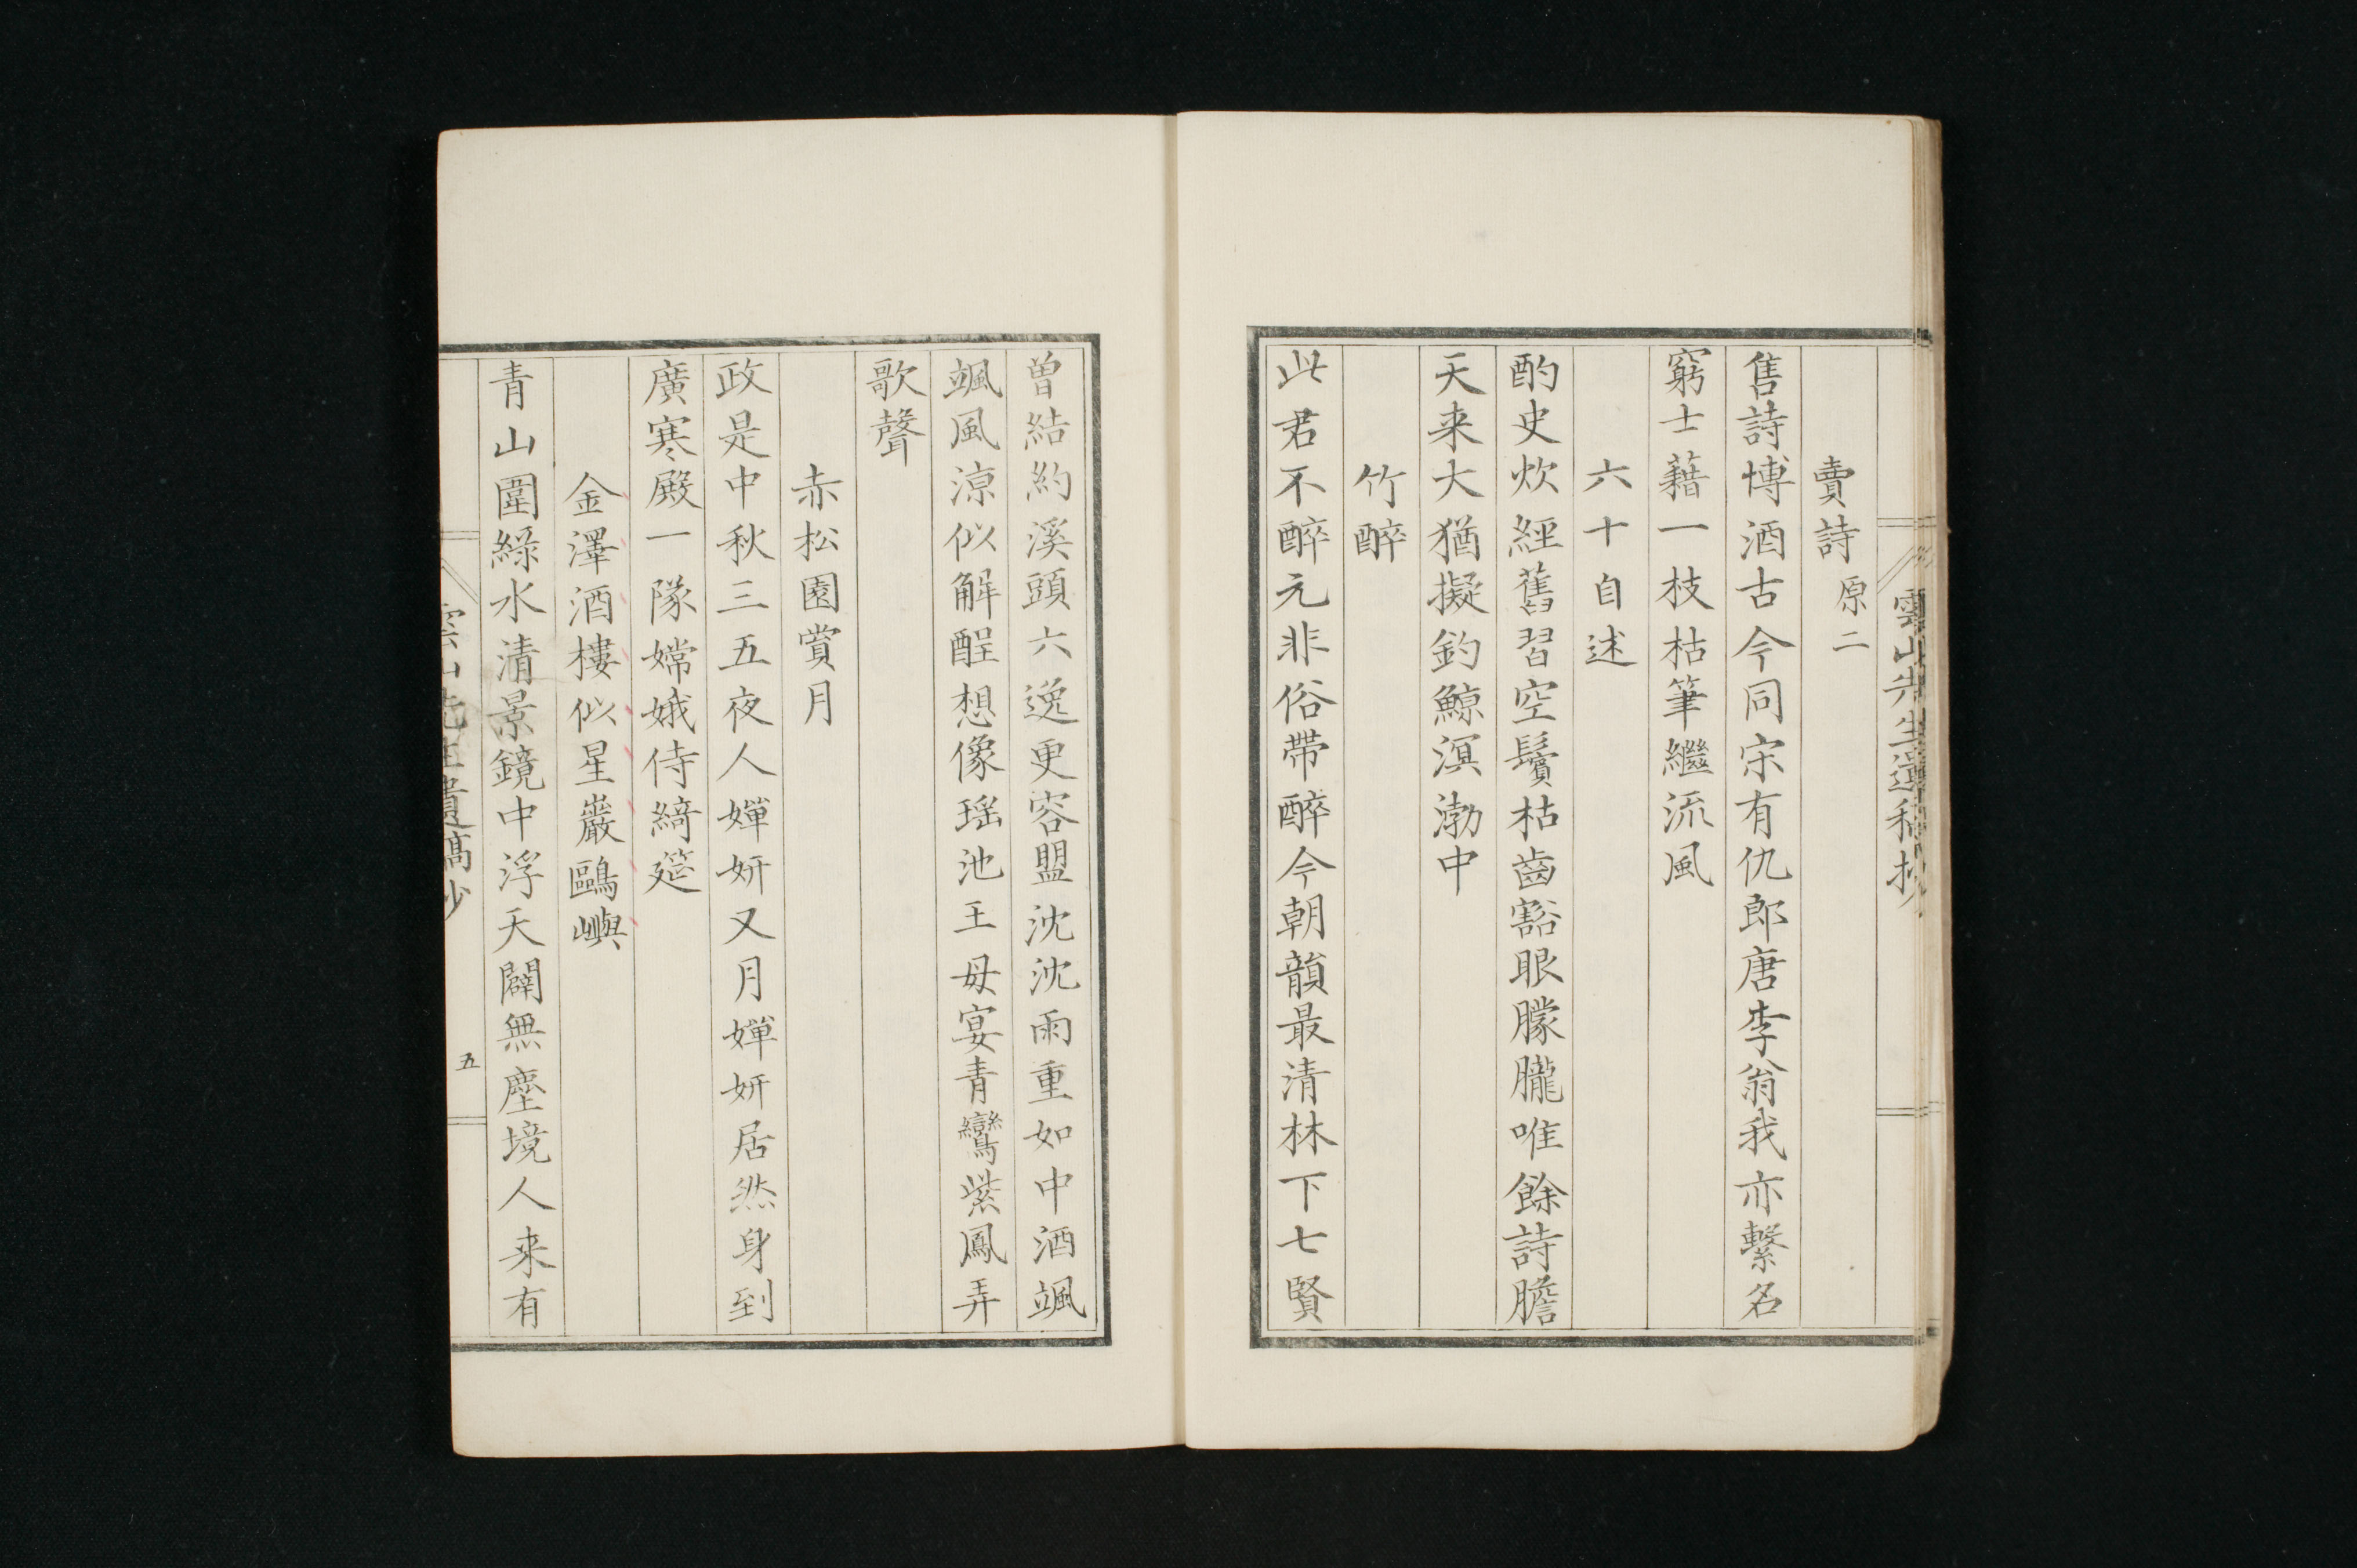 雲山先生遺稿抄
賣詩 原二
售詩博酒古今同宋有仇郎唐李翁我亦繫名
窮士藉一枝枯筆繼流風
六十自述
酌史炊經舊習空鬢枯齒豁眼朦朧唯餘詩膽
天来大猶擬釣鯨溟渤中
竹醉
此君不醉元非俗帶醉今朝韻最清林下七賢
曽結約溪頭六逸更容盟沈沈雨重如中酒颯
颯風涼似解酲想像瑶池王母宴青鸞紫鳳弄
歌聲
赤松園賞月
政是中秋三五夜人嬋妍又月嬋妍居然身到
廣寒殿一隊嫦娥侍綺筵
金澤酒樓似星巖鷗嶼
青山圍綠水清景鏡中浮天闢無塵境人来有
雲山先生遺稿抄
五